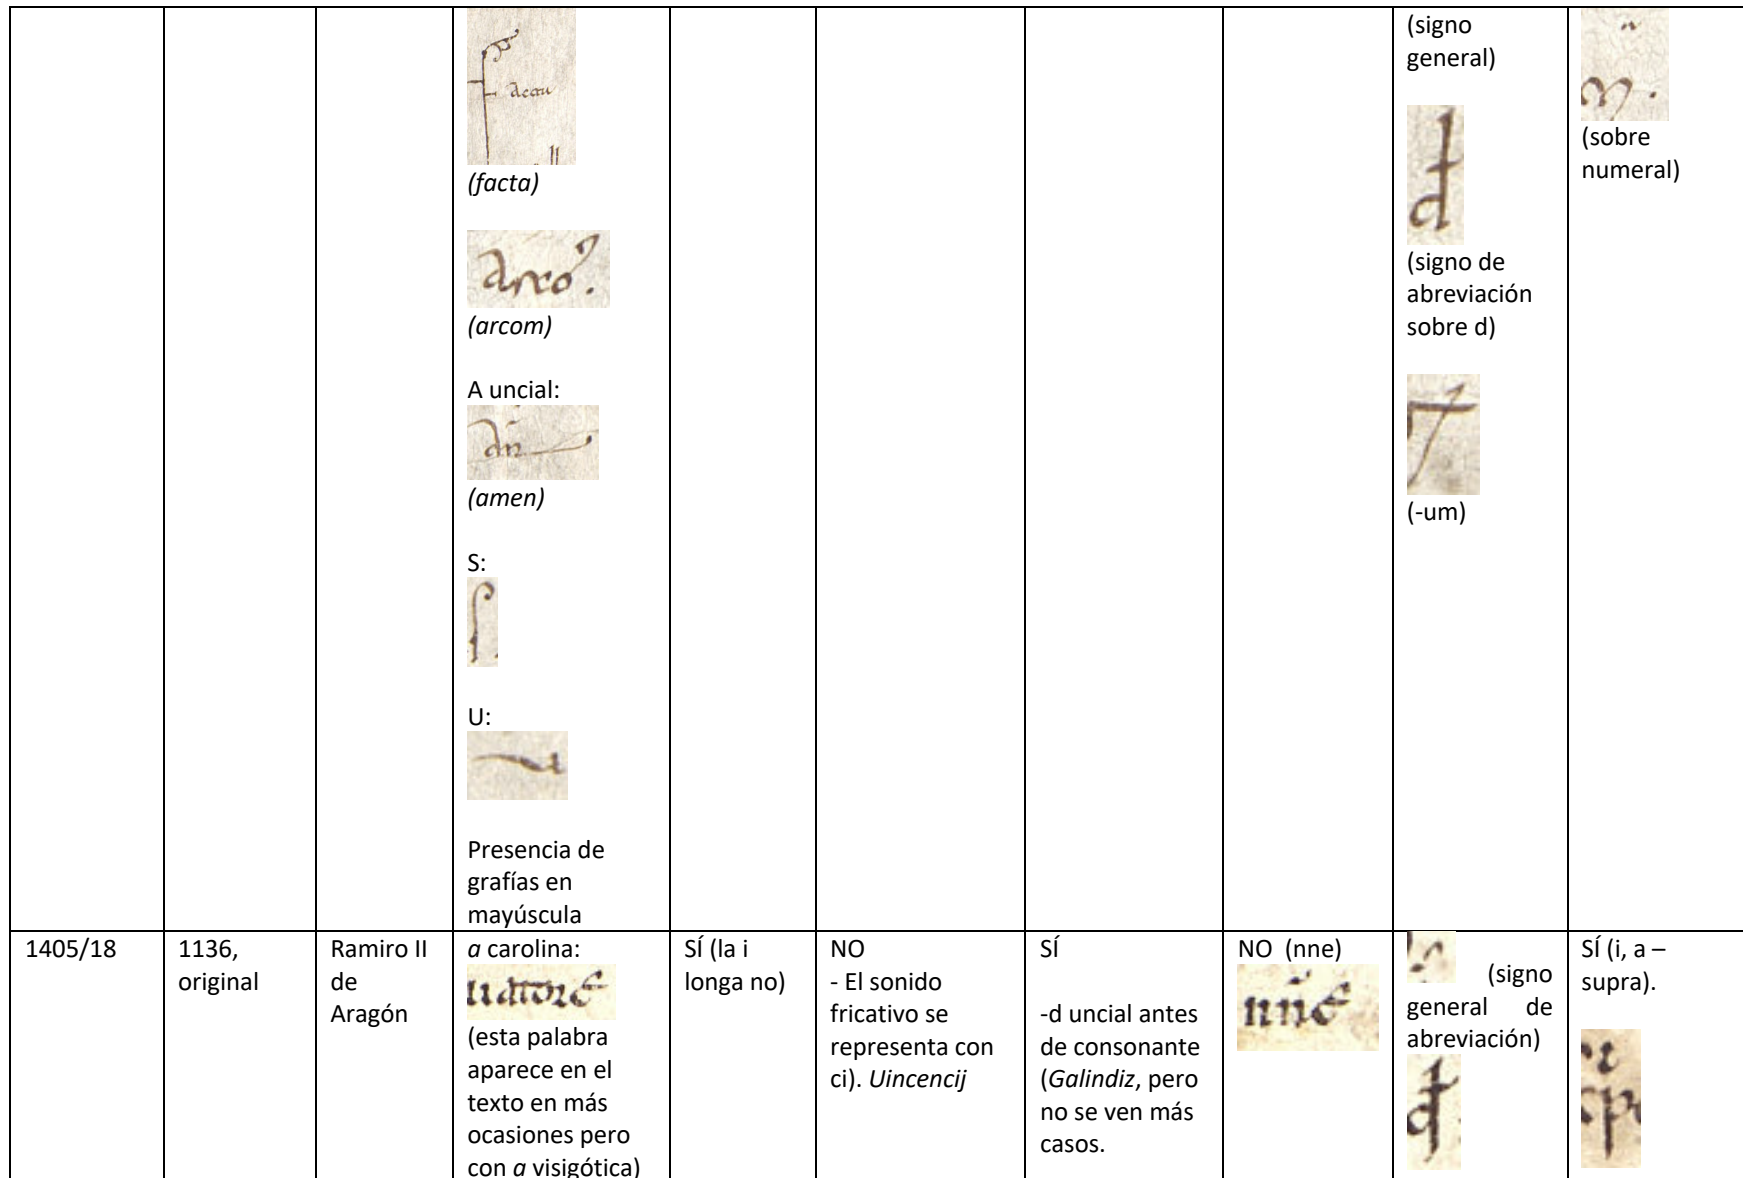 (facta)
(arcom)
A uncial:
(amen)
S:
U:
Presencia de
grafías en
mayúscula
(signo
general)
(signo de
abreviación
sobre d)
(-um)
(sobre
numeral)
1405/18
1136,
original
Ramiro II
de
Aragón
a carolina:
(esta palabra
aparece en el
texto en más
ocasiones pero
con a visigótica)
SÍ (la i
longa no)
NO
- El sonido
fricativo se
representa con
ci). Uincencij
SÍ
-d uncial antes
de consonante
(Galindiz, pero
no se ven más
casos.
NO (nne)
nne
(signo
general de
abreviación)
SÍ (i, a –
supra).